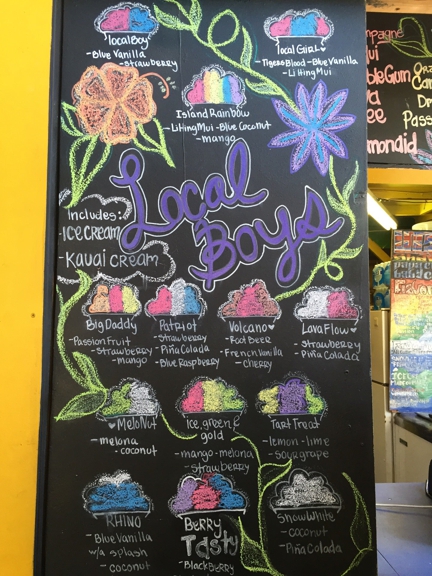 Local Boy
-Blue Vanilla
-Strawberry
Local Girl
-Tigers Blood-Blue Vanilla
-Li Hing Mui
Island Rainbow
Li Hing Mui-Blue Coconut
-mango
Local
Boys
Includes:
-ICE CREAM
-Kauai Cream
Big Daddy
-Passion Fruit
-Strawberry
-mango
Patriot
-Strawberry
-Piña Colada
-Blue Raspberry
Volcano
-Root Beer
-French Vanilla
-Cherry
Lava Flow
-Strawberry
-Piña Colada
MeloNut
-melona
-coconut
Ice, green, &
gold
-mango-melona
-strawberry
Tart Treat
-lemon-lime
-sour grape
RHINO
-Blue Vanilla
w/a splash
-coconut
BeRRy
Tasty
-BlackBerry
Snow White
-coconut
-Piña Colada